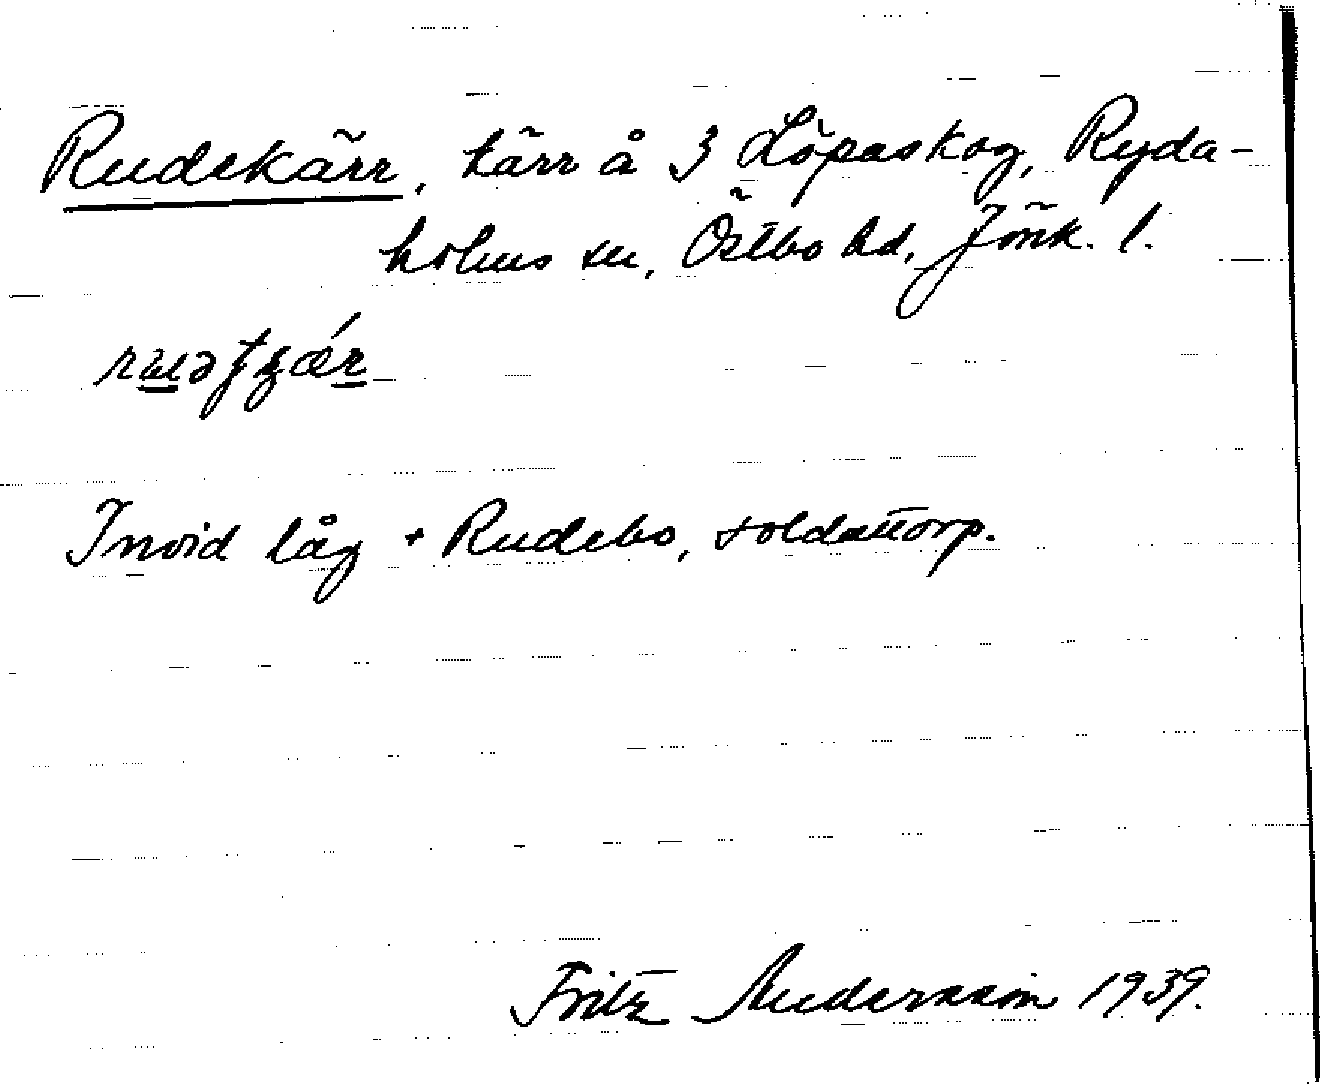 Rudekärr, kärr å 3 Löpaskog, Ryda-
holms sn, Östbo hd, Jönk. l.
Invid låg + Rudebo, soldattorp.
Fritz Andersson 1939.